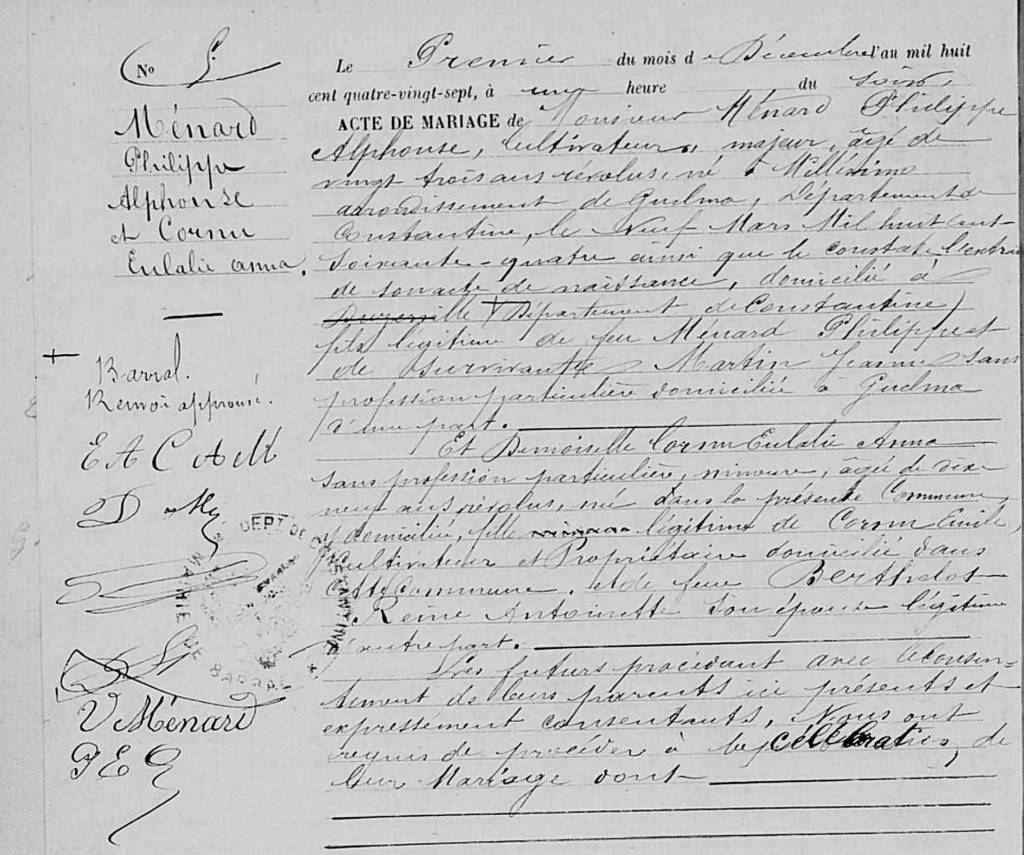 No 5
Ménard
Philippe
Alphonse
et Cornu
Eulalie Anna.
+
Barral.
Renvoi approuvé.
E A C A M
V Ménard
P E C
Le Premier du mois de Décembre l'an mil huit
cent quatre-vingt-sept, à une heure du soir
ACTE DE MARIAGE de Monsieur Ménard Philippe
Alphonse, Cultivateur, majeur, âgé de
vingt trois ans révolus, né à Millésimo
arrondissement de Guelma, Département de
Constantine, le Neuf Mars Mil huit cent
Soixante-quatre ainsi que le constate l'extrait
de son acte de naissance, domicilié à
Duzerville + (Département de Constantine)
fils légitime de feu Ménard Philippe et
de survivante Martin Jeanne sans
profession particulière domiciliée à Guelma
d'une part.
Et Demoiselle Cornu Eulalie Anna
sans profession particulière, mineure, âgée de dix
neuf ans révolus, née dans la présente Commune,
y domiciliée, fille mineure légitime de Cornu Emile,
Cultivateur et Propriétaire domicilié dans
cette Commune, et de feue Berthelot
Reine Antoinette son épouse légitime
d'autre part.
Les futurs procédant avec le consen=
tement de leurs parents ici présents et
expressement consentants, Nous ont
requis de procéder à la célébration de
leur Mariage dont
DEPT DE CONSTANTINE
MAIRIE DE BARRAL